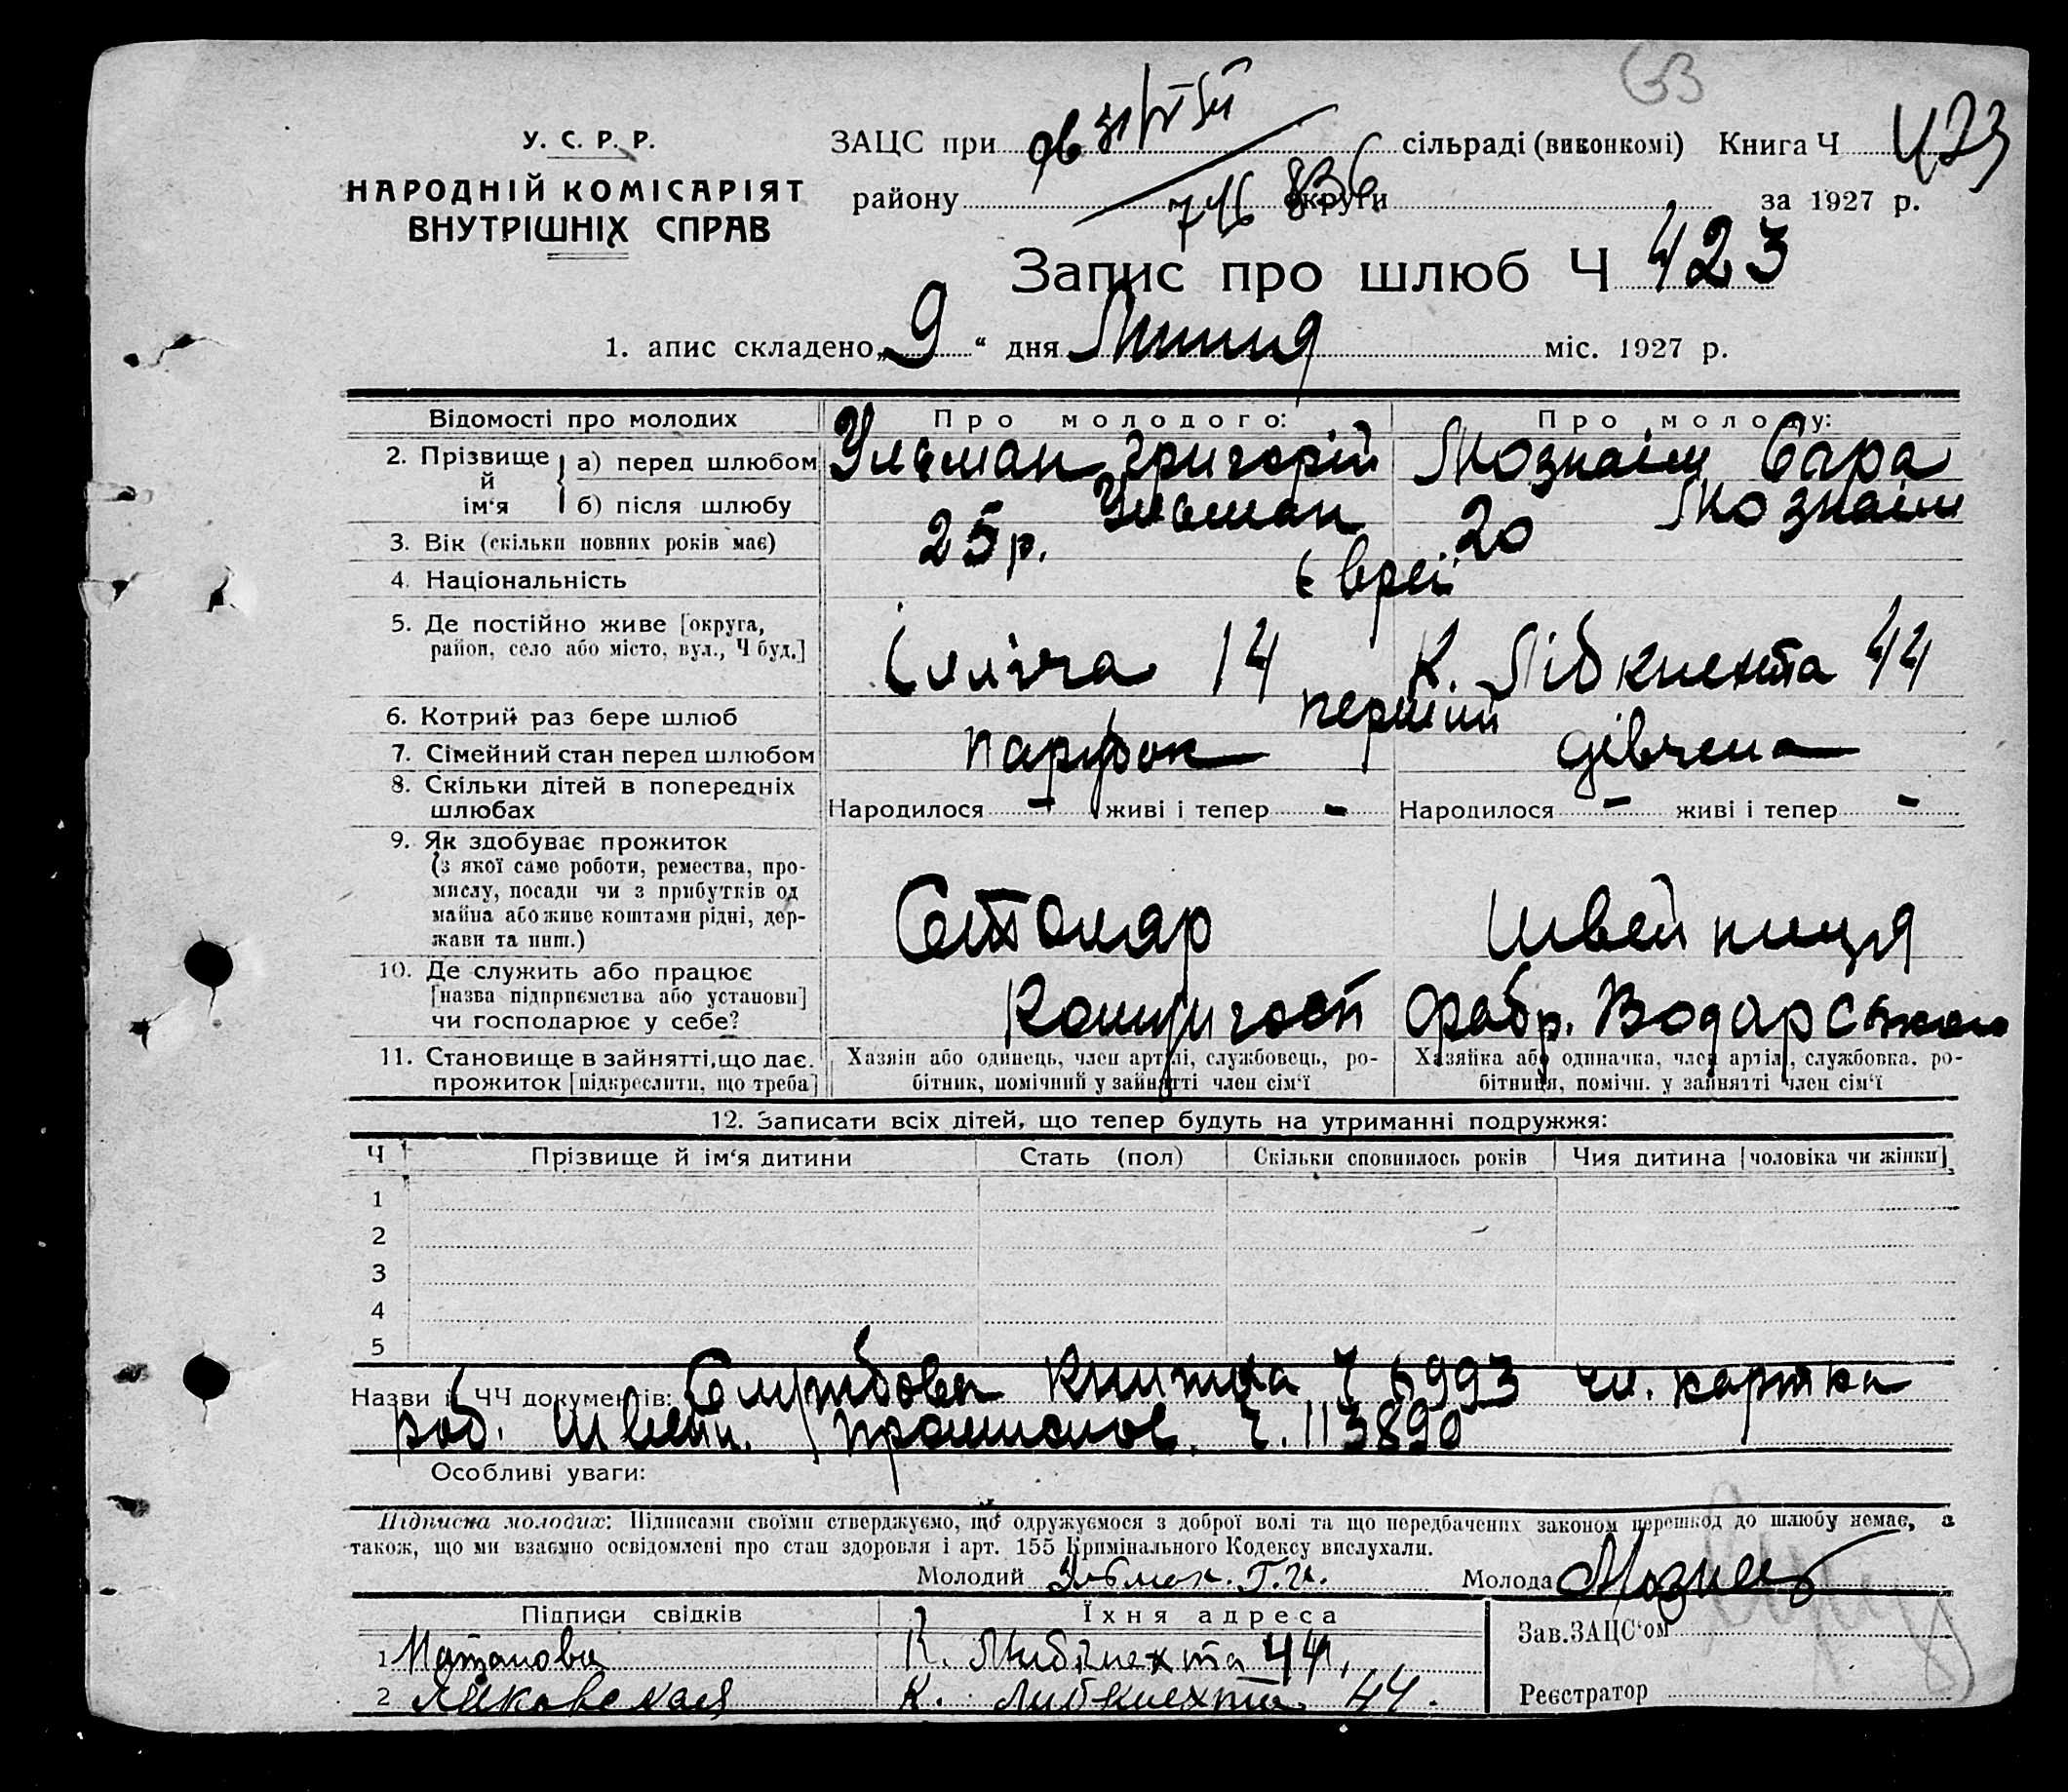 У. С. Р. Р.
НАРОДНІЙ КОМІСАРІЯТ
ВНУТРІШНІХ СПРАВ
ЗАЦС при сільраді (виконкомі) Книга Ч 423
району 746 836 округи за 1927 р.
Запис про шлюб Ч 423
1. апис складено „9“ дня Липня міс. 1927 р.
Відомості про молодих Про молодого: Про молоду:
2. Прізвище й ім'я а) перед шлюбом Ульман Григорій Мознаім Сара
б) після шлюбу Ульман Мознаім
3. Вік (скільки повних років має) 25 р. 20
4. Національність Євреї
5. Де постійно живе [округа, район, село або місто, вул., Ч буд.] Ілліча 14 К. Лібкнехта 44
6. Котрий раз бере шлюб перший
7. Сімейний стан перед шлюбом парубок дівчена
8. Скільки дітей в попередніх шлюбах Народилося - живі і тепер - Народилося - живі і тепер -
9. Як здобуває прожиток
(з якої саме роботи, ремества, про-
мислу, посади чи з прибутків од
майна або живе коштами рідні, дер-
жави та инш.)
Столяр Швейниця
10. Де служить або працює
[назва підприємства або установи]
чи господарює у себе?
Фабр. Водарського
11. Становище в зайнятті, що дає.
прожиток [підкреслити, що треба]
Хазяін або одинець, член артілі, службовець, ро-
бітник, помічний у зайнятті член сім'ї
Хазяйка або одиначка, член артілі, службовка, ро-
бітниця, помічн. у зайнятті член сім'ї
12. Записати всіх дітей, що тепер будуть на утриманні подружжя:
Ч Прізвище й ім'я дитини Стать (пол) Скільки сповнилось років Чия дитина [чоловіка чи жінки]
1
2
3
4
5
Назви й ЧЧ документів: Службова книжка Ч 6993 чл. картка
роб. Швейн. промислов. Ч. 113890
Особливі уваги:
Підписка молодих: Підписами своїми стверджуємо, що одружуємося з доброї волі та що передбачених законом перешкод до шлюбу немає, а
також, що ми взаємно освідомлені про стан здоровля і арт. 155 Кримінального Кодексу вислухали.
Молодий Молода
Підписи свідків Їхня адреса Зав. ЗАЦС'ом
1 К. Либкнехта 44,
2 К. Либкнехта 44. Реєстратор